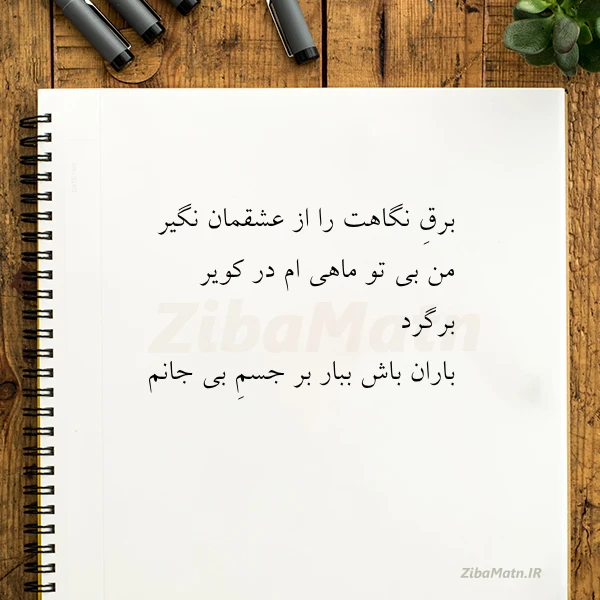 برقِ نگاهت را از عشقمان نگیر
من بی تو ماهی ام در کویر
برگرد
باران باش ببار بر جسمِ بی جانم
ZibaMatn
ZibaMatn.IR